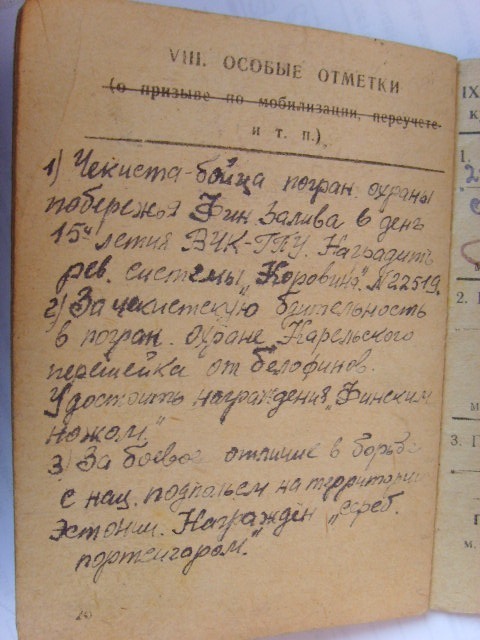 VIII. ОСОБЫЕ ОТМЕТКИ
(о призыве по мобилизации, переучете
и т. п.)
1) Чекиста-бойца погран. охраны
побережья Фин. Залива в день
15ч летия ВЧК-ГПУ. Наградить
рев. системы „Коровин". №22519.
2) За чекистскую бдительность
в погран. охране Карельского
перешейка от белофинов.
Удостоить награждения „Финским
ножом"
3) За боевое отличие в борьбе
с нац. подпольем на территории
Эстонии. Награжден „сереб.
портсигаром."
IX
к
1.
2.
м
3. П
м.